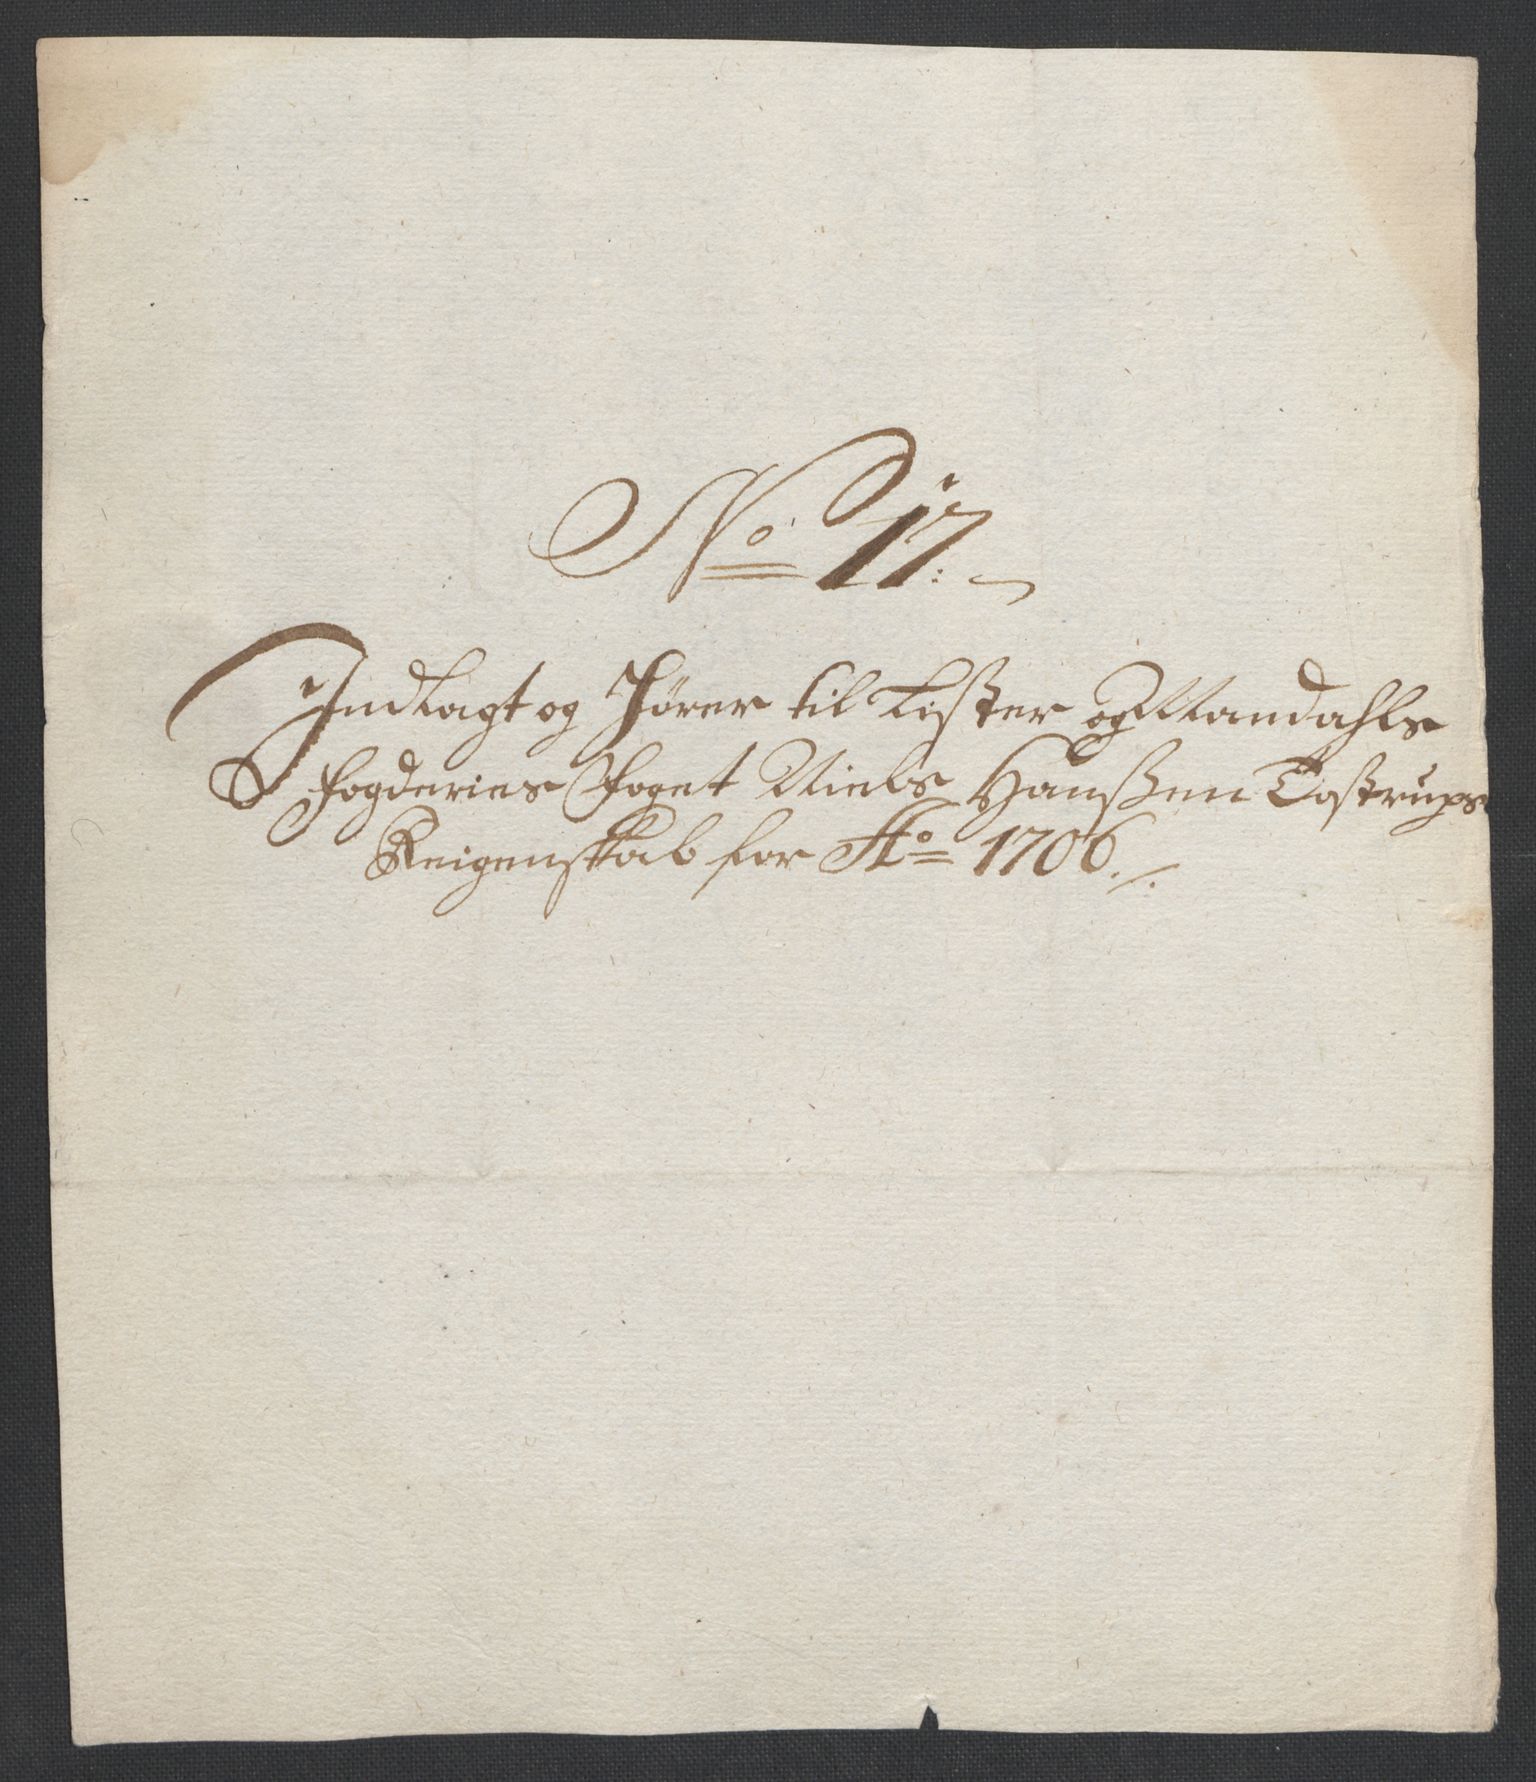 No 17.
Indlagt og Hører til Lister og Mandahls
fogderies Foget Niels Hanßen Tostrups
Reigenskab for Ao 1706.